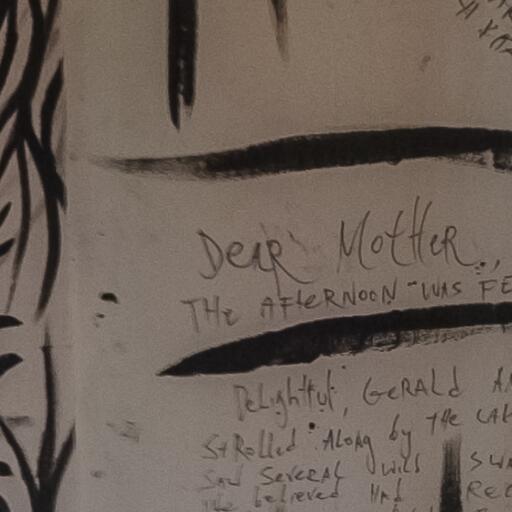 Dear Mother.,
The Afternoon was Fe
Delightful, Gerald an
Strolled Along by the lak
Saw Several wils swa
He believed Had rec